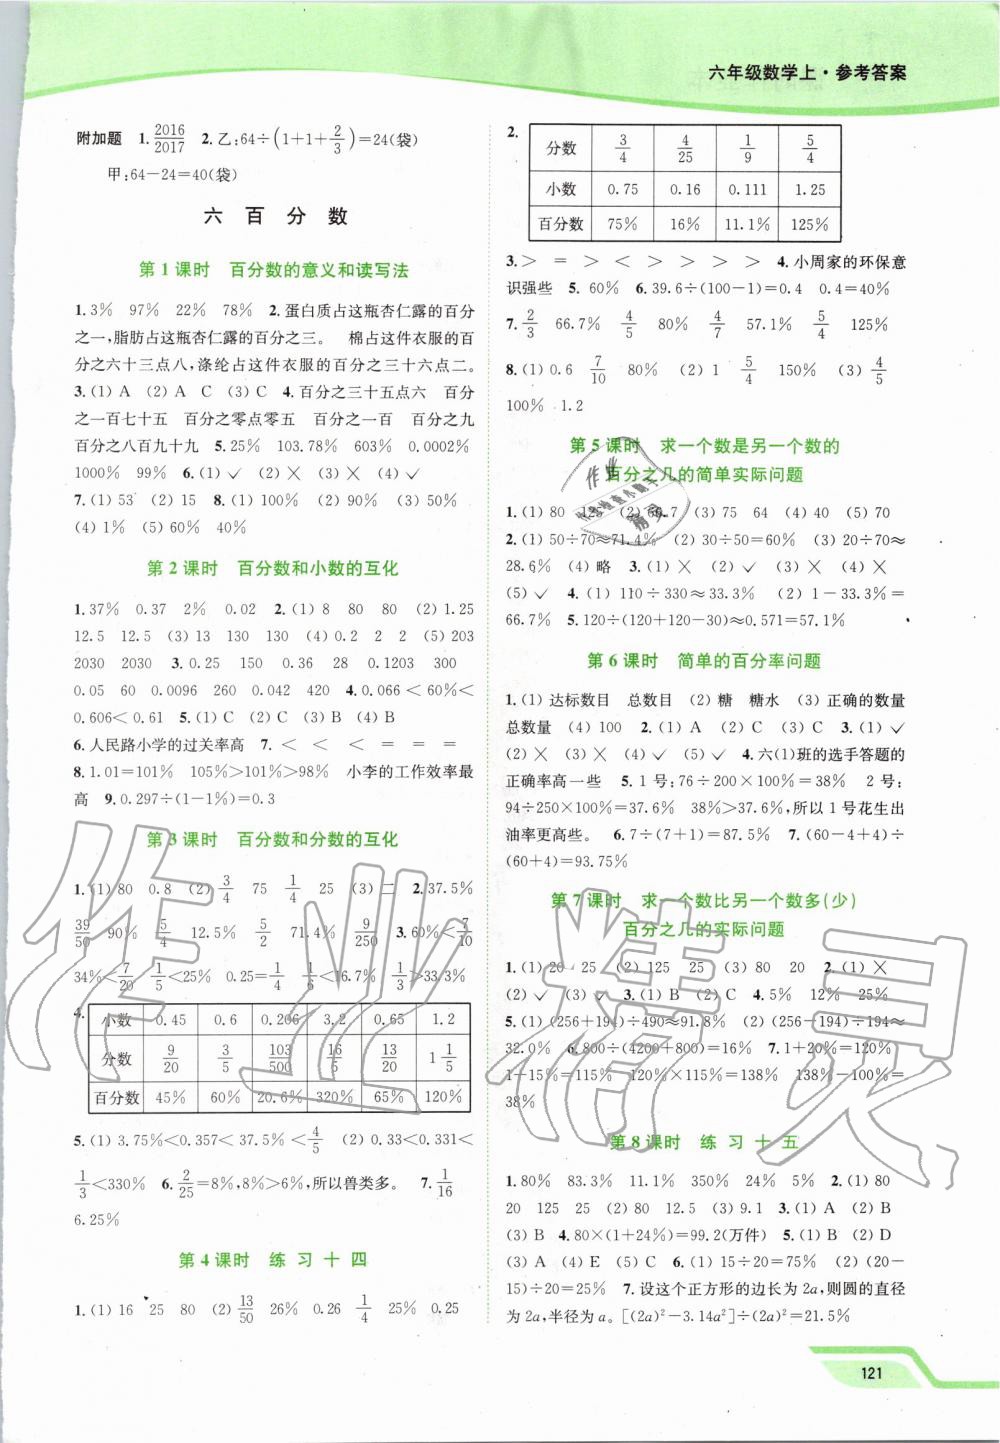 六年级数学上·参考答案
附加题 1. 2016/2017 2. 乙:64÷(1+1+2/3)=24(袋)
甲:64-24=40(袋)
六 百 分 数
第 1 课时 百分数的意义和读写法
1. 3% 97% 22% 78% 2. 蛋白质占这瓶杏仁露的百分
之一,脂肪占这瓶杏仁露的百分之三。 棉占这件衣服的百
分之六十三点八,涤纶占这件衣服的百分之三十六点二。
3. (1) A (2) A C (3) C 4. 百分之三十五点六 百分
之一百七十五 百分之零点零五 百分之一百 百分之九
百分之八百九十九 5. 25% 103.78% 603% 0.0002%
1000% 99% 6. (1) ✓ (2) × (3) × (4) ✓
7. (1) 53 (2) 15 8. (1) 100% (2) 90% (3) 50%
(4) 1% (5) 60% 40%
第 2 课时 百分数和小数的互化
1. 37% 0.37 2% 0.02 2. (1) 8 80 80 (2) 1.25
12.5 12.5 (3) 13 130 130 (4) 0.2 2 2 (5) 203
2030 2030 3. 0.25 150 0.36 28 0.1203 300
0.05 60 0.0096 260 0.002 200 4. 0.066<60%<
0.606<0.61 5. (1) C (2) C (3) B (4) B
6. 人民路小学的过关率高 7. < < < = = =
8. 1.01=101% 105%>101%>98% 小李的工作效率最
高 9. 0.297÷(1-1%)=0.3
第 3 课时 百分数和分数的互化
1. (1) 80 0.8 (2) 3/4 75 1/4 25 (3) 二 2. 37.5%
39/50 90% 5/4 12.5% 5/2 71.4% 9/250 3. 60%<7/10
34%<7/20 1/5<25% 0.25=1/4 1/6<16.7% 1/3>33.3%
4.
小数 0.45 0.6 0.206 3.2 0.65 1.2
分数 9/20 3/5 103/500 16/5 13/20 1 1/5
百分数 45% 60% 20.6% 320% 65% 120%
5. (1) 3.75%<0.357<37.5%<4/5 (2) 0.33<0.331<
1/3<330% 6. 2/25=8%,8%>6%,所以兽类多。 7. 1/16
6.25%
第 4 课时 练 习 十 四
1. (1) 16 25 80 (2) 13/50 26% 0.26 1/4 25% 0.25
2.
分数 3/4 4/25 1/9 5/4
小数 0.75 0.16 0.111 1.25
百分数 75% 16% 11.1% 125%
3. > = > < > > > > 4. 小周家的环保意
识强些 5. 60% 6. 39.6÷(100-1)=0.4 0.4=40%
7. 2/3 66.7% 4/5 80% 4/7 57.1% 5/4 125%
8. (1) 0.6 7/10 80% (2) 1 5/4 150% (3) 4/5
100% 1.2
第 5 课时 求一个数是另一个数的
百分之几的简单实际问题
1. (1) 80 125 (2) 66.7 (3) 75 64 (4) 40 (5) 70
2. (1) 50÷70≈71.4% (2) 30÷50=60% (3) 20÷70≈
28.6% (4) 略 3. (1) × (2) ✓ (3) × (4) ×
(5) ✓ 4. (1) 110÷330≈33.3% (2) 1-33.3%=
66.7% 5. 120÷(120+120-30)≈0.571=57.1%
第 6 课时 简单的百分率问题
1. (1) 达标数目 总数目 (2) 糖 糖水 (3) 正确的数量
总数量 (4) 100 2. (1) A (2) C (3) C 3. (1) ✓
(2) × (3) × (4) ✓ (5) ✓ 4. 六(1)班的选手答题的
正确率高一些 5. 1 号:76÷200×100%=38% 2 号:
94÷250×100%=37.6% 38%>37.6%,所以 1 号花生出
油率更高些。 6. 7÷(7+1)=87.5% 7. (60-4+4)÷
(60+4)=93.75%
第 7 课时 求一个数比另一个数多(少)
百分之几的实际问题
1. (1) 20 25 (2) 125 25 (3) 80 20 2. (1) ×
(2) ✓ (3) ✓ 3. (1) B (2) C 4. 5% 12% 25%
5. (1) (256+194)÷490≈91.8% (2) (256-194)÷194≈
32.0% 6. 800÷(4200+800)=16% 7. 1+20%=120%
1-15%=115% 120%×115%=138% 138%-100%=
38%
第 8 课时 练 习 十 五
1. 80% 83.3% 11.1% 350% 24% 5% 2. (1) 80
20 125 25 (2) 80 12.5 (3) 9.1 3. (1) A (2) D
(3) B 4. 80×(1+24%)=99.2(万件) 5. (1) B (2) D
(3) A (4) E (5) C 6. (1) 15÷20=75% (2) (20-
15)÷20=25% 7. 设这个正方形的边长为 2a,则圆的直径
为 2a,半径为 a。[(2a)²-3.14a²]÷(2a)²=21.5%
121
作业精灵